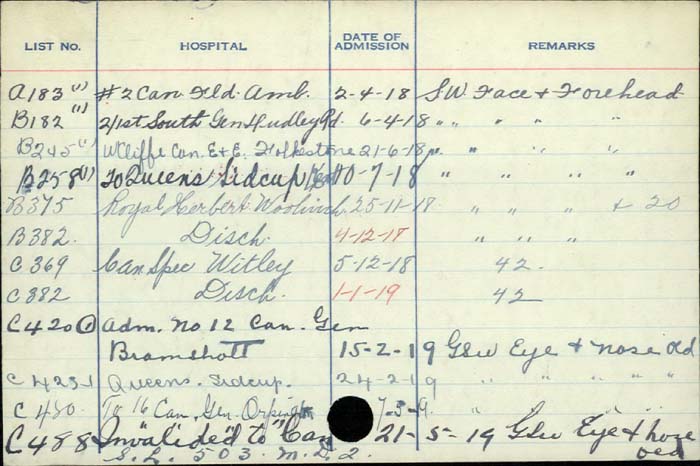 LIST NO. HOSPITAL DATE OF ADMISSION REMARKS
A183 (1) #2 Can Fld. Amb. 2-4-18 SW Face & Forehead
B182 (1) 2/1st South Gen Dudley Rd. 6-4-18 " " " " "
B245 (1) W Cliffe Can. E & E. Folkestone 21-6-18 " " " "
B258 (1) To Queens Sidcup 10-7-18 " " " "
B375 Royal Herbert Woolwich 25-11-18 " " " " & 20
B382. Disch. 4-12-17 " " "
C369 Can Spec Witley 5-12-18 42.
C382 Disch. 1-1-19 42
C420 (1) Adm. No 12 Can. Gen
Bramshott 15-2-19 Gsw Eye & nose old
C423-1 Queens. Sidcup. 24-2-19 " " " " "
C430. To 16 Can. Gen. Orpington 7-3-9. " " " "
C488 Invalided to Can 21-5-19 Gsw Eye & nose
S.L. 503. M.D.2. old